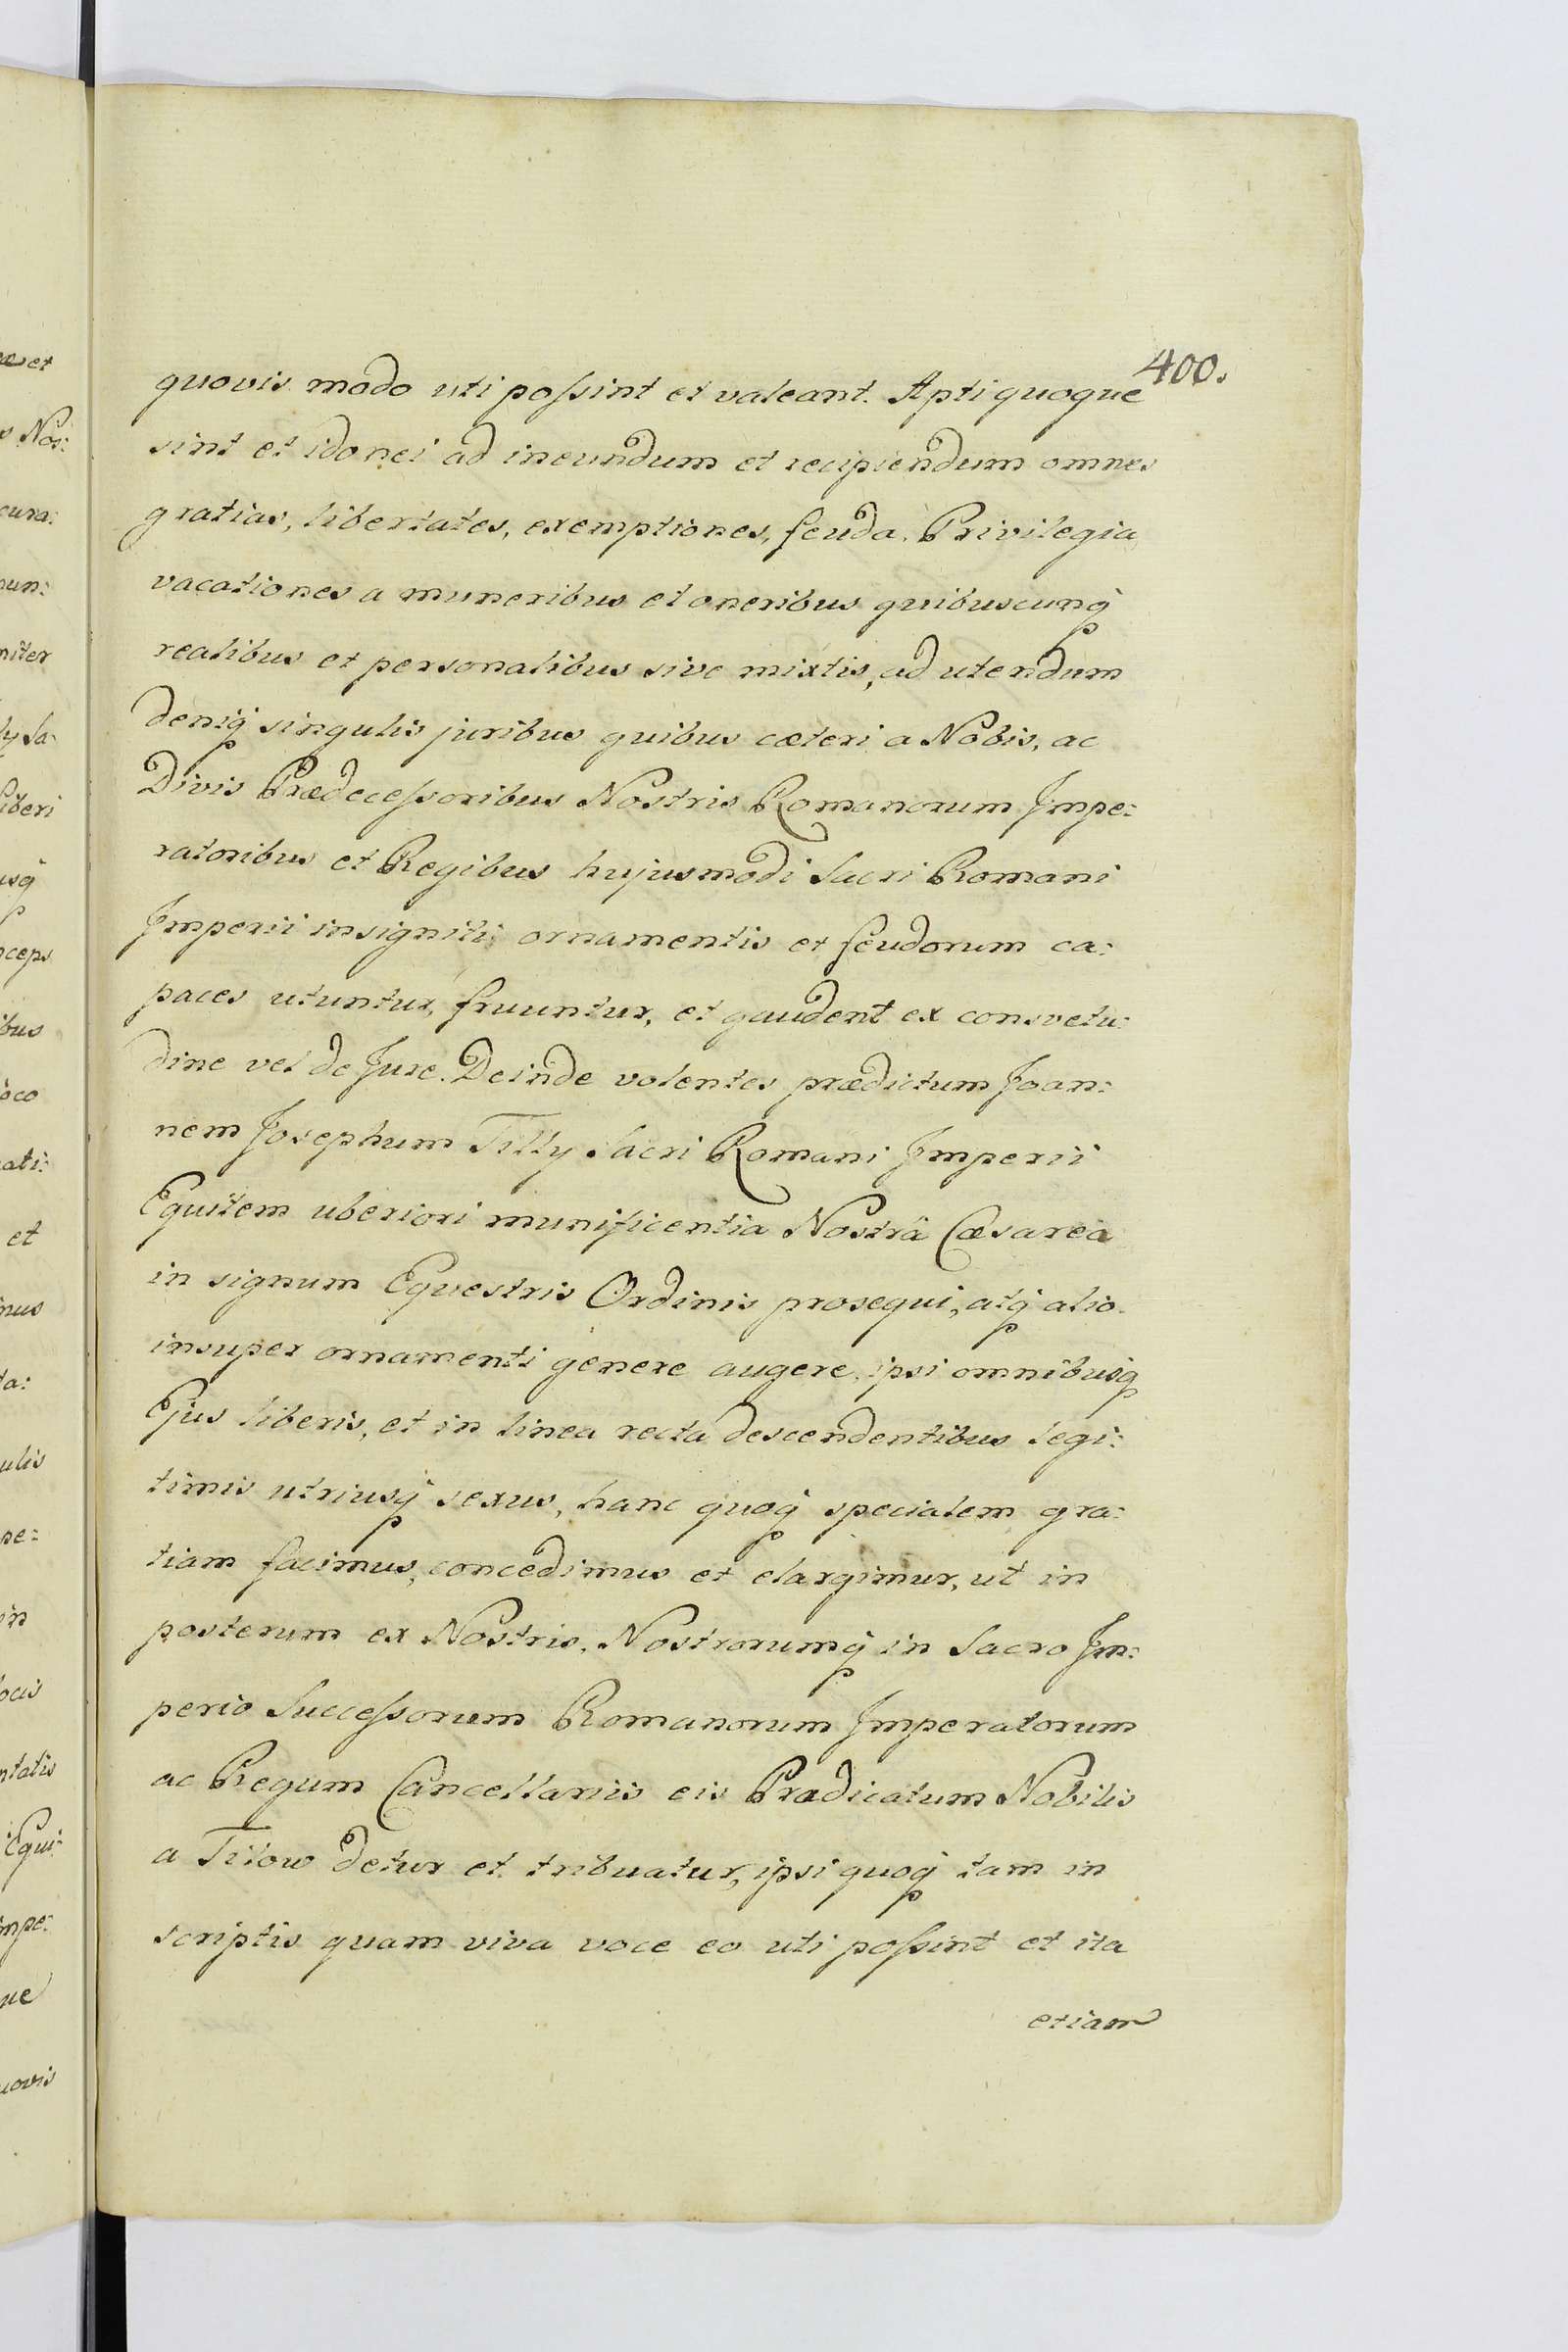 400.
quovis modo uti poſsint et valeant. Apti quoque
sint et idonei ad ineundum et recipiendum omnes
gratias, libertates, exemptiones, feuda, Privilegia,
vacationes a muneribus et oneribus quibuscunq́
realibus et personalibus sive mixtis, ad utendum
deniq́ singulis juribus quibus cæteri a Nobis, ac
Divis Prædeceſsoribus Nostris Romanorum Impe:
ratoribus et Regibus hujusmodi Sacri Romani
Imperii insigniti ornamentis et feudorum ca:
paces utuntur, fruuntur, et gaudent ex consvetu:
dine vel de Jure. Deinde volentes prædictum Joan:
nem Josephum Tilly Sacri Romani Imperii
Equitem uberiori munificentia Nostrâ Cæsarea
in signum Equestris Ordinis prosequi, atq́ alio
insuper ornamenti genere augere, ipsi omnibusq́
Ejus liberis, et in linea recta descendentibus legi:
timis utriusq́ sexus, hanc quoq́ specialem gra:
tiam facimus, concedimus et elargimur, ut in
posterum ex Nostris, Nostrorumq́ in Sacro Im:
perio Succeſsorum Romanorum Imperatorum
ac Regum Cancellariis eis Prædicatum Nobilis
a Tilow detur et tribuatur, ipsi quoq́ tam in
scriptis quam viva voce eo uti poſsint et ita
etiam
æ et
s Nos:
cura:
mun:
niter
ly Sa:
Liberi
usq́
nceps
ibus
loco
ati:
et
mus
ta:
ulis
pe:
in
locis
ntatis
Equi:
Impe:
ue
uovis